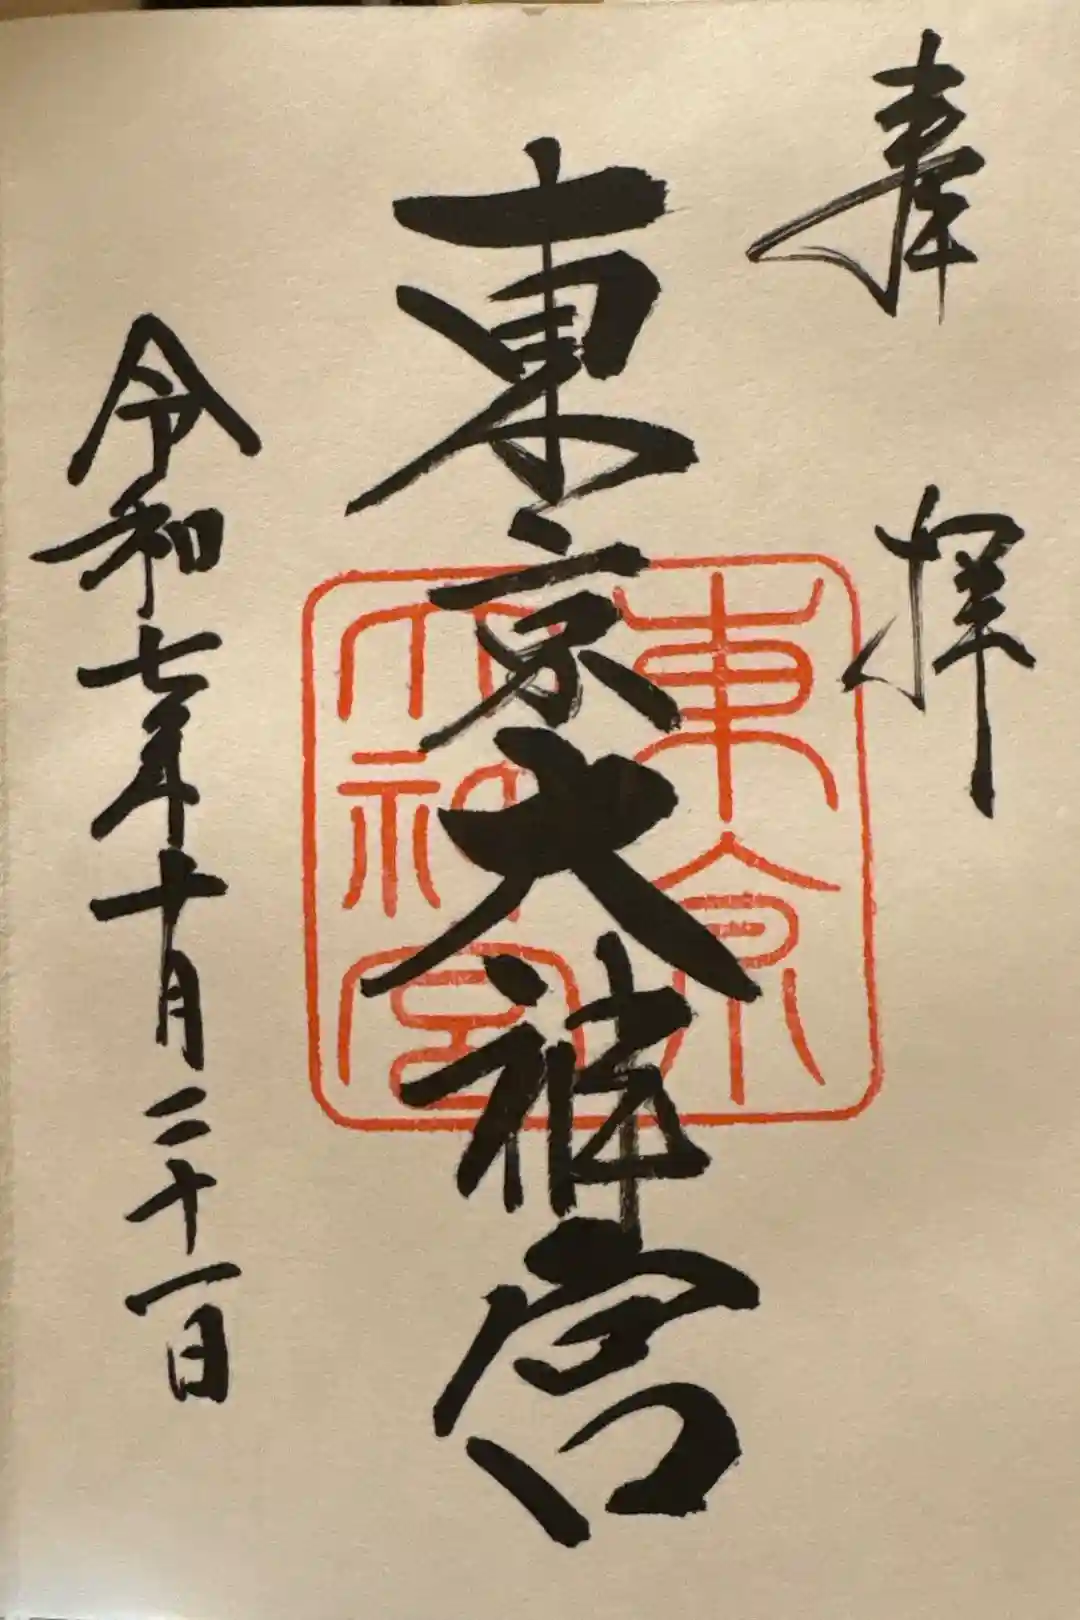 奉拝
東京大神宮
東京
大神宮
令和七年十月二十一日